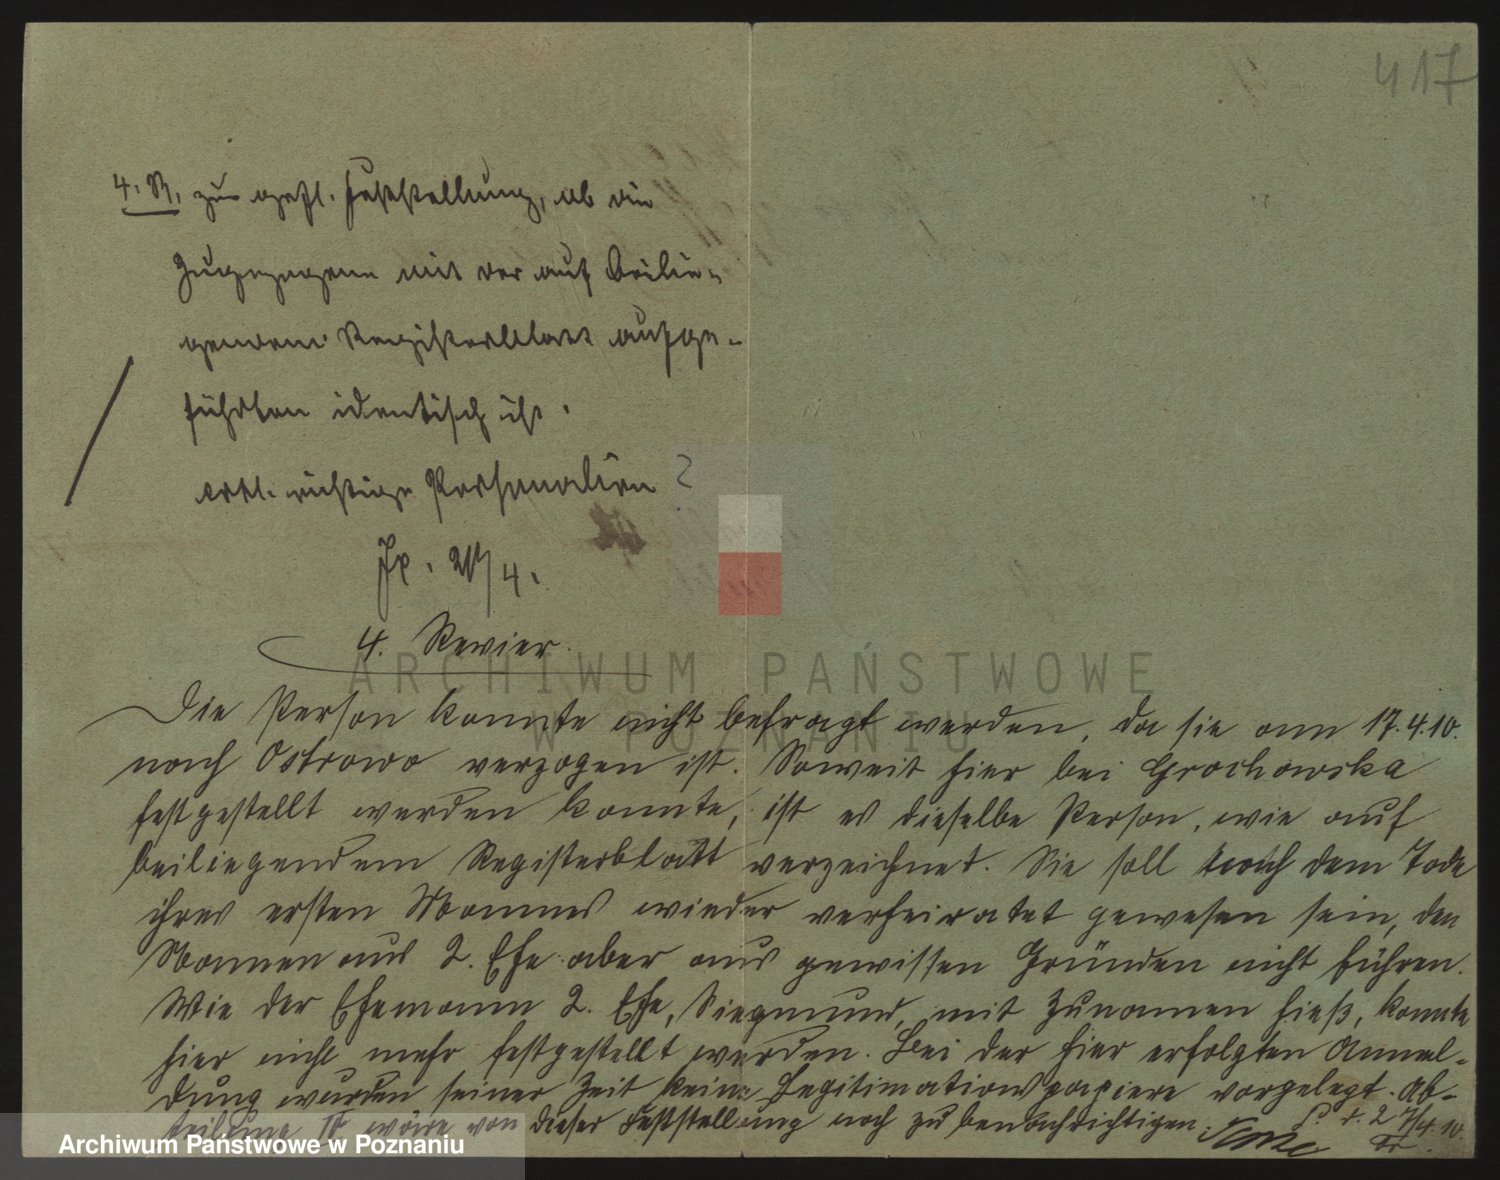 417
4. R. zur gefl. Feststellung, ob die
Zugezogene mit der auf beilie-
gendem Registerblatt aufge-
führten identisch ist.
evtl. richtige Personalien?
4.
4. Revier.
Die Person konnte nicht befragt werden, da sie am 17.4.10.
nach Ostrowo verzogen ist. Soweit hier bei Grochowska
festgestellt werden konnte, ist es dieselbe Person, wie auf
beiliegendem Registerblatt verzeichnet. Sie soll nach dem Tode
ihres ersten Mannes wieder verheiratet gewesen sein, den
Namen aus 2. Ehe aber aus gewissen Gründen nicht führen.
Wie der Ehemann 2. Ehe, Siegmund, mit Zunamen hieß, konnte
hier nicht mehr festgestellt werden. Bei der hier erfolgten Anmel-
dung wurden seiner Zeit keine Legitimationspapiere vorgelegt. Ab-
teilung IV wäre von dieser Feststellung noch zu benachrichtigen.
P. d. 27/4.10.
ARCHIWUM PAŃSTWOWE
W POZNANIU
Archiwum Państwowe w Poznaniu